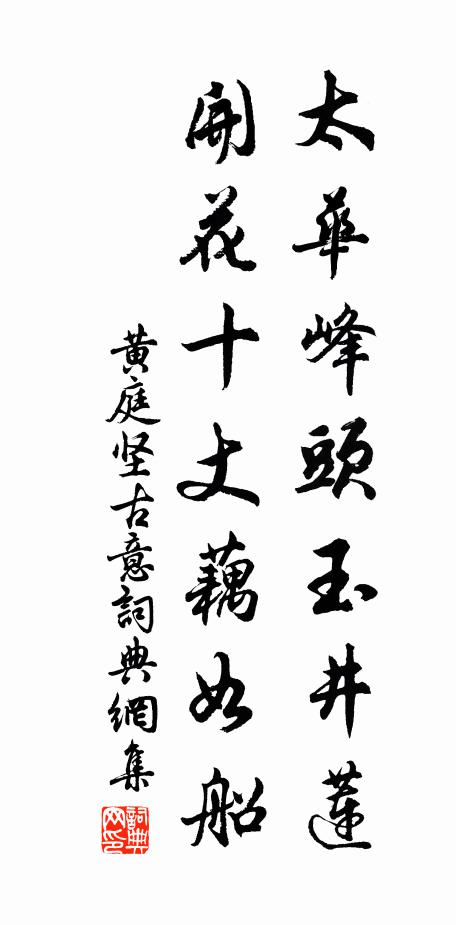 太華峰頭玉井蓮
開花十丈藕如船
黄庭坚古意詞典網集
詞典網印